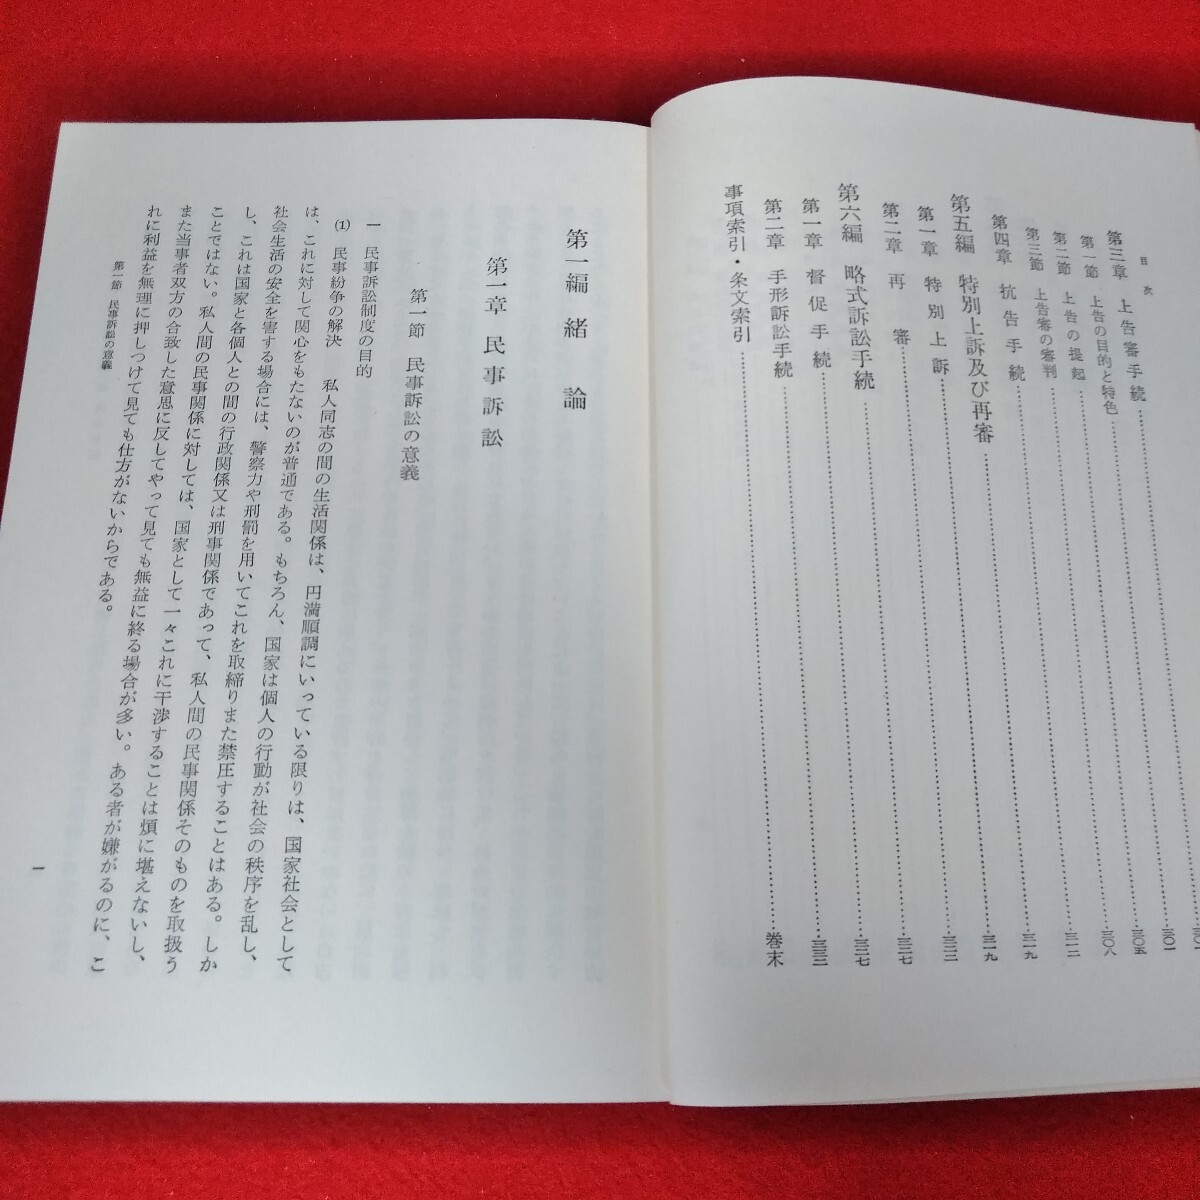 目次
第三章 上告審手続……三〇一
第一節 上告の目的と特色……三〇一
第二節 上告の提起……三〇五
第三節 上告審の審判……三〇八
第四章 抗告手続……三一二
第五編 特別上訴及び再審……三一九
第一章 特別上訴……三一九
第二章 再審……三二二
第六編 略式訴訟手続……三二七
第一章 督促手続……三二七
第二章 手形訴訟手続……三三二
事項索引・条文索引……巻末
第一編 緒論
第一章 民事訴訟
第一節 民事訴訟の意義
一 民事訴訟制度の目的
(1) 民事紛争の解決 私人同志の間の生活関係は、円満順調にいっている限りは、国家社会として
は、これに対して関心をもたないのが普通である。もちろん、国家は個人の行動が社会の秩序を乱し、
社会生活の安全を害する場合には、警察力や刑罰を用いてこれを取締りまた禁圧することはある。しか
し、これは国家と各個人との間の行政関係又は刑事関係であって、私人間の民事関係そのものを取扱う
ことではない。私人間の民事関係に対しては、国家として一々これに干渉することは煩に堪えないし、
また当事者双方の合致した意思に反してやって見ても無益に終る場合が多い。ある者が嫌がるのに、こ
れに利益を無理に押しつけて見ても仕方がないからである。
第一節 民事訴訟の意義
一